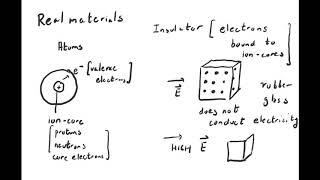 Real materials
Atoms
e⁻ [valence
electrons]
+
ion-core
[protons
neutrons
core electrons]
Insulator [electrons
bound to
ion-cores]
E
rubber
glass
does not
conduct electricity
HIGH E